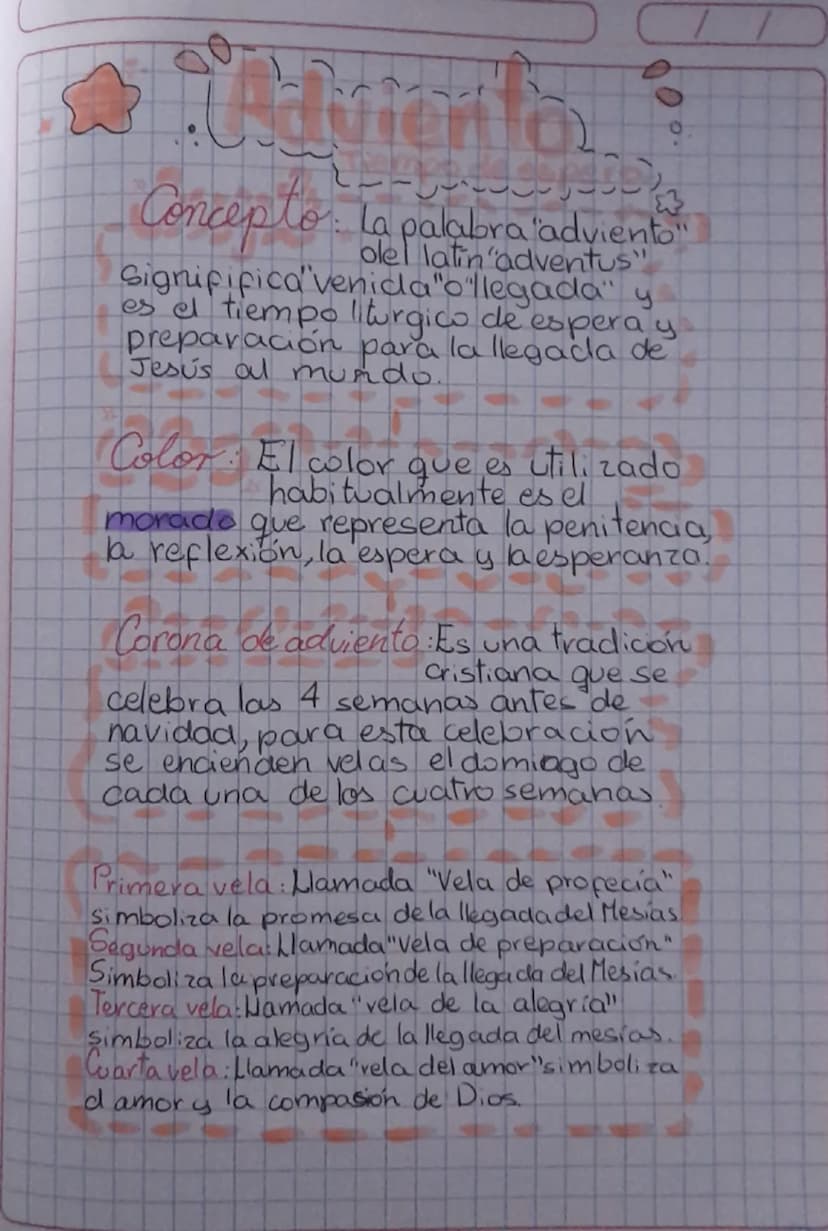 / /
Adviento
Tiempo de espera
Concepto: La palabra "adviento"
del latin "adventus"
signififica "venida" o "llegada" y
es el tiempo liturgico de espera y
preparación para la llegada de
Jesús al mundo.
Color: El color que es utilizado
habitualmente es el
morado que representa la penitencia,
la reflexión, la espera y la esperanza.
Corona de adviento: Es una tradición
cristiana que se
celebra las 4 semanas antes de
navidad, para esta celebración
se encienden velas el domingo de
cada una de los cuatro semanas.
Primera vela: Llamada "Vela de profecía"
simboliza la promesa de la llegada del Mesías
Segunda vela: Llamada "Vela de preparación"
Simboliza la preparacion de la llegada del Mesías.
Tercera vela: Llamada "vela de la alegría"
simboliza la alegría de la llegada del mesías.
Cuarta vela: Llamada "vela del amor" simboliza
el amor y la compasión de Dios.